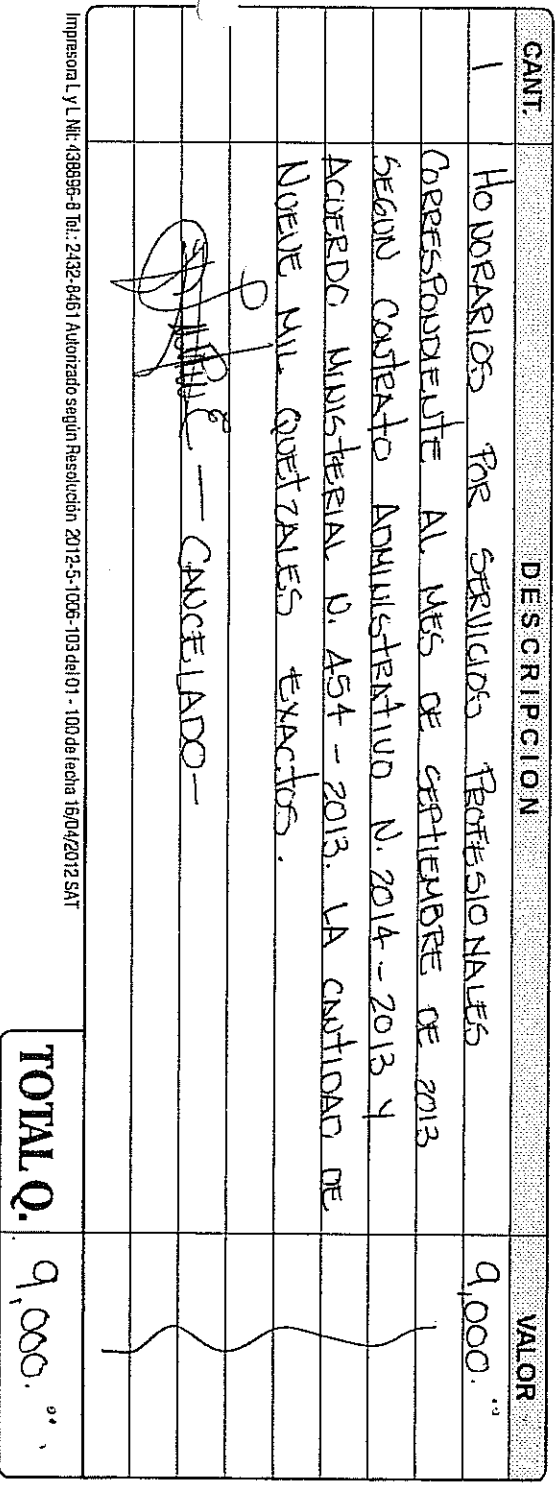 CANT. DESCRIPCION VALOR
1 HONORARIOS POR SERVICIOS PROFESIONALES 9,000.
CORRESPONDIENTE AL MES DE SEPTIEMBRE DE 2013
SEGUN CONTRATO ADMINISTRATIVO N. 2014-2013 Y
ACUERDO MINISTERIAL N. 454-2013. LA CANTIDAD DE
NUEVE MIL QUETZALES EXACTOS.
— CANCELADO —
TOTAL Q. 9,000.
Impresora L y L Nit: 438896-8 Tel.: 2432-8461 Autorizado según Resolución 2012-5-1006-103 del 01 - 100 de fecha 16/04/2012 SAT